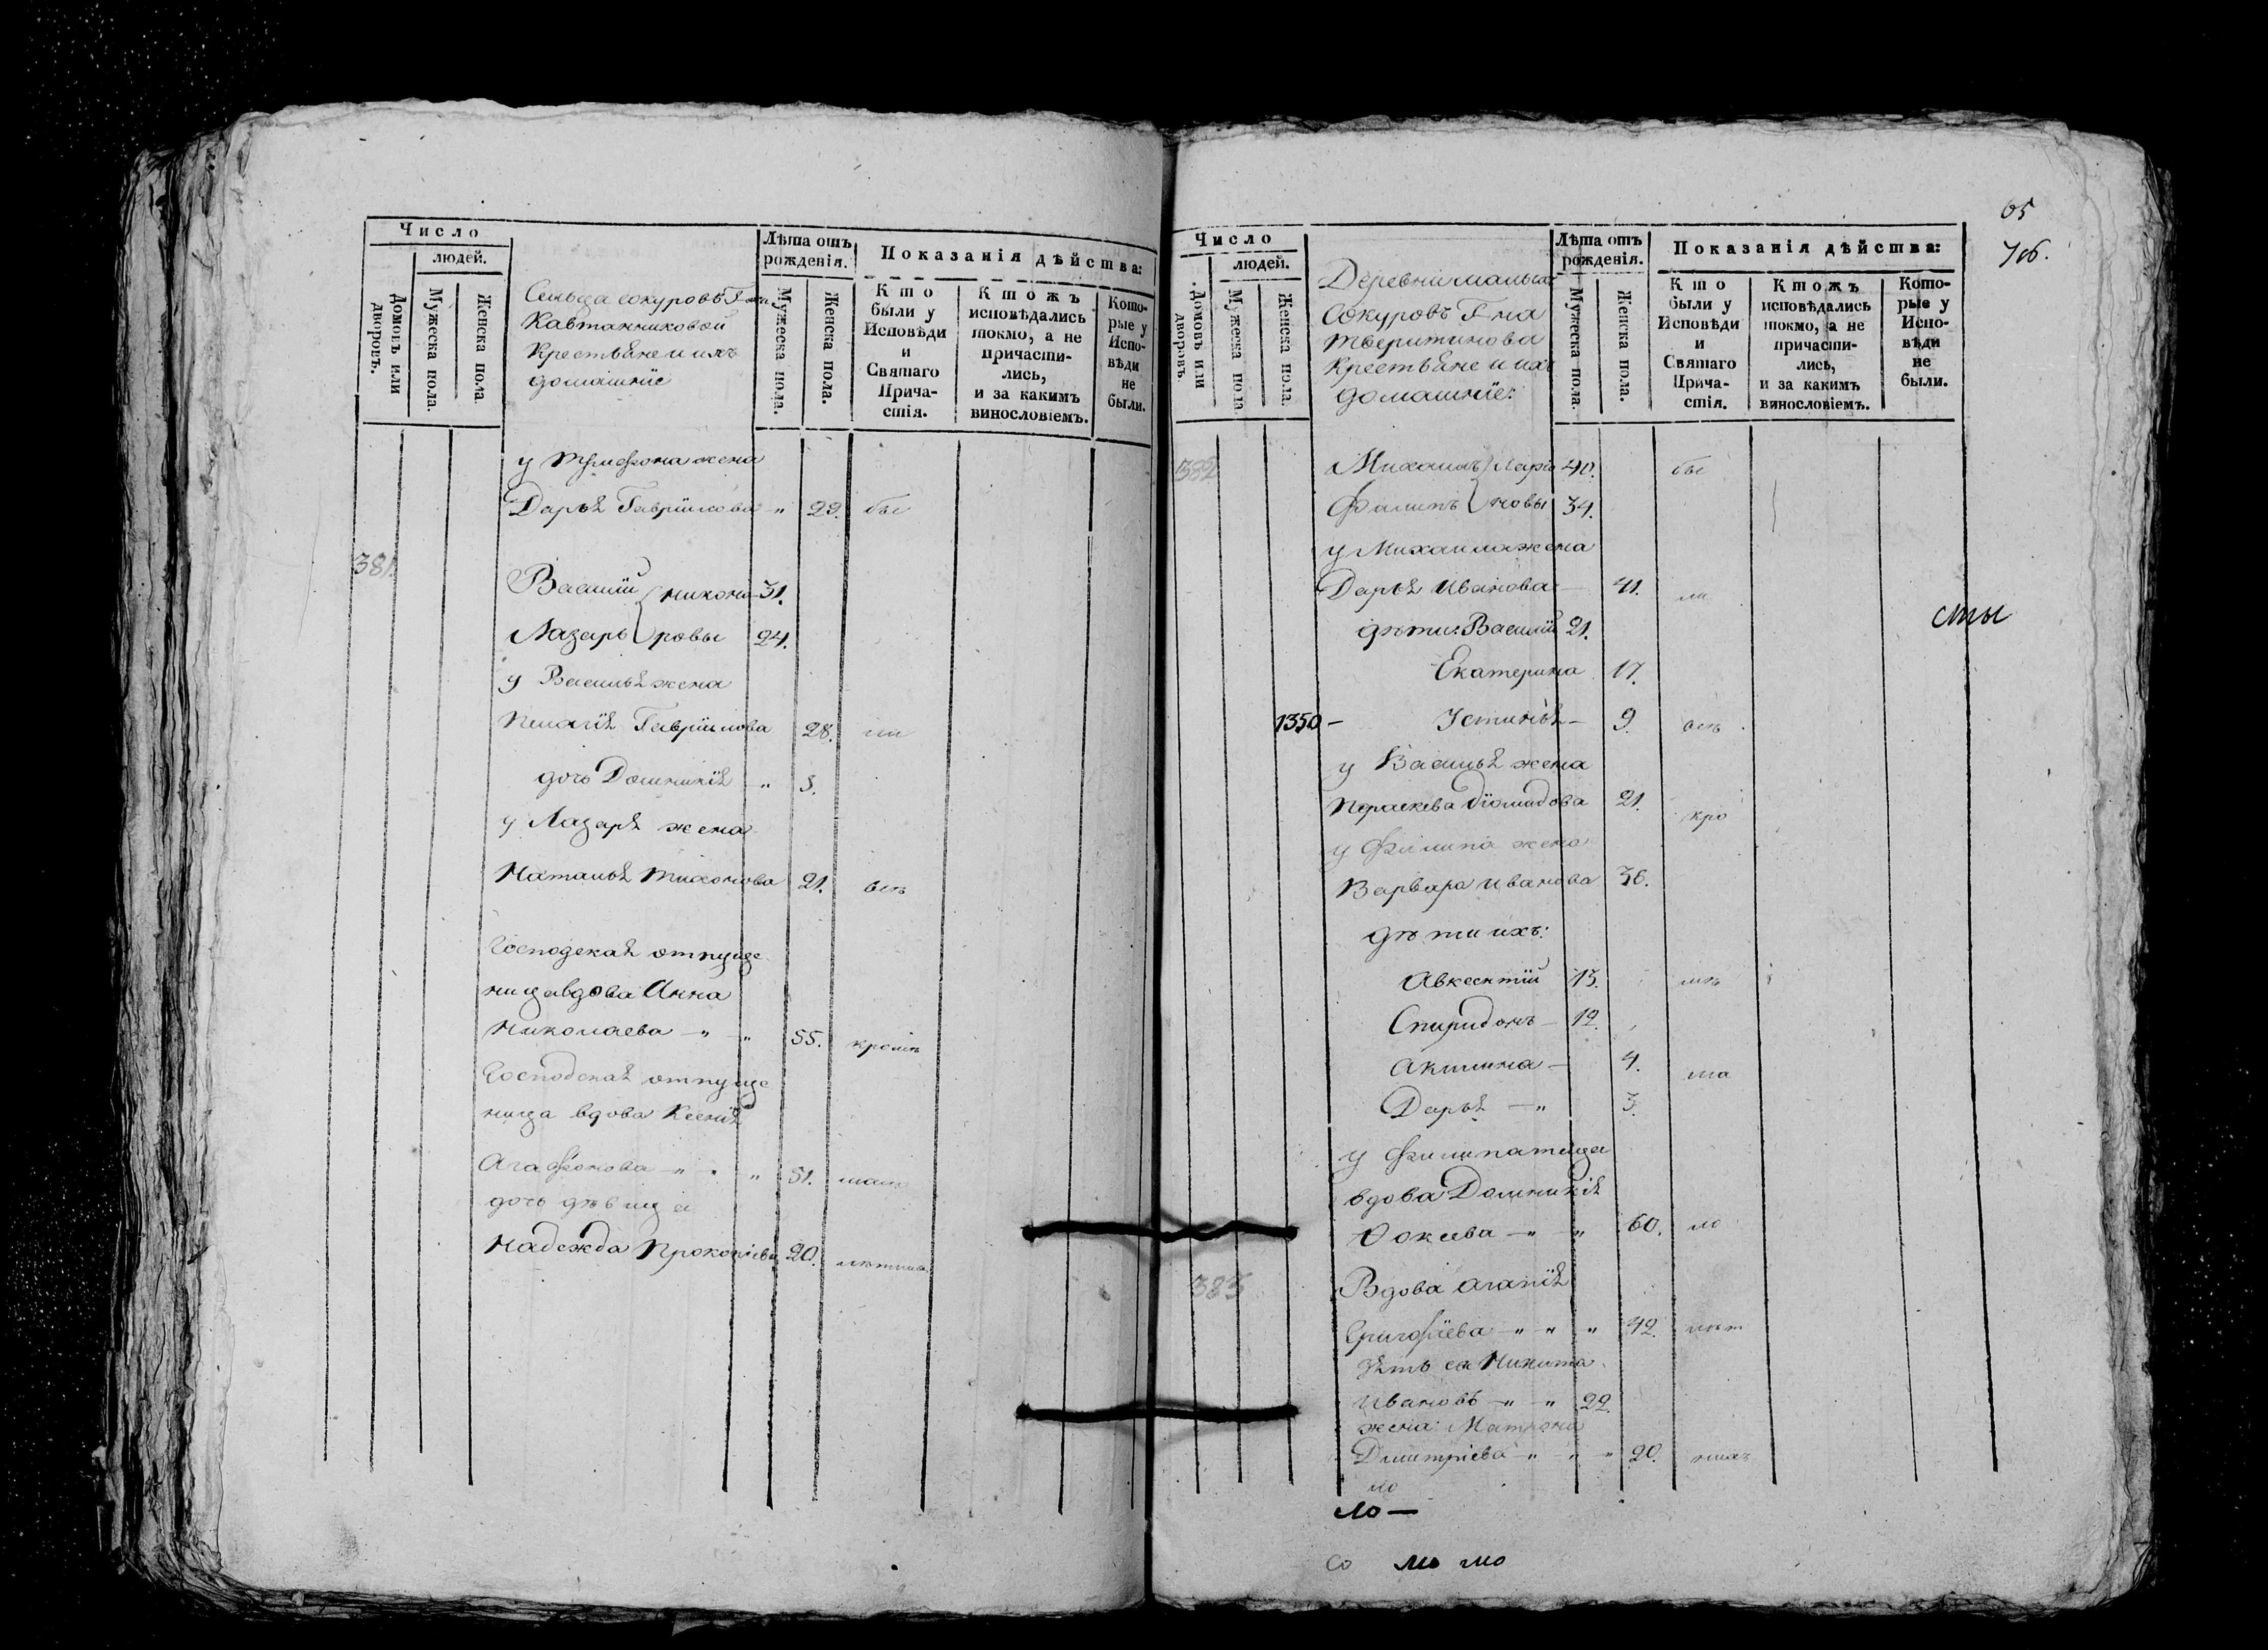 Число
людей.
Домовъ или дворовъ.
Мужеска пола.
Женска пола.
Сельца сокуровъ Г жи
Кавтанниковой
Крестьяне и ихъ
домашніе
Лѣта отъ рожденія.
Мужеска пола.
Женска пола.
Показанія дѣйства:
Кто были у Исповѣди и Святаго Причастія.
Ктожъ исповѣдались токмо, а не причастились, и за какимъ винословіемъ.
Которые у Исповѣди не были.
у Трифона жена
Дарья Гавріилова - " 29. бы
381.
Василій } никано- 31.
Лазарь } ровы 24.
у Василья жена
Пелагія Гавріилова 28. ли
дочь Домникія - " 3.
у Лазаря жена
Наталья Тихонова 21. всѣ
Господская отпуще
ница вдова Анна
Николаева - " - " 55. кромѣ
Господская отпуще
ница вдова Ксенія
Агафонова - " - " 51.
дочь дѣвица
Надежда Прокопіева 20.
65
Число
людей.
Домовъ или дворовъ.
Мужеска пола
Женска пола.
Деревни малыхъ
Сокуровъ Г на
Тверитинова
Крестьяне и ихъ
домашніе:
Лѣта отъ рожденія.
Мужеска пола.
Женска пола.
Показанія дѣйства:
Кто были у Исповѣди и Святаго Причастія.
Ктожъ исповѣдались токмо, а не причастились, и за какимъ винословіемъ.
Которые у Исповѣди не были.
382 Михаилъ } Ларіо 40. бы
Филипъ } новы 34.
у Михаила жена
Дарья Иванова - 41. ли
дѣти: Василій 21.
сты
Екатерина 17.
1350 - Устинья - 9. всѣ
у Василья жена
Параскева Діомидова 21. кро
у Филипа жена
Варвара Иванова 36.
дѣти ихъ:
Авксентій 15.
Спиридонъ - 12.
Акилина - 4.
Дарья - " 3.
у Филипа теща
вдова Домникія
Фокеева - " - " 60. ло
383 Вдова Агапія
Григорьева - " - " " 42.
зять ея Никита
Ивановъ - " - " 22.
жена Матрона
Димитріева - " - " 20.
ло
ло -
со мо мо